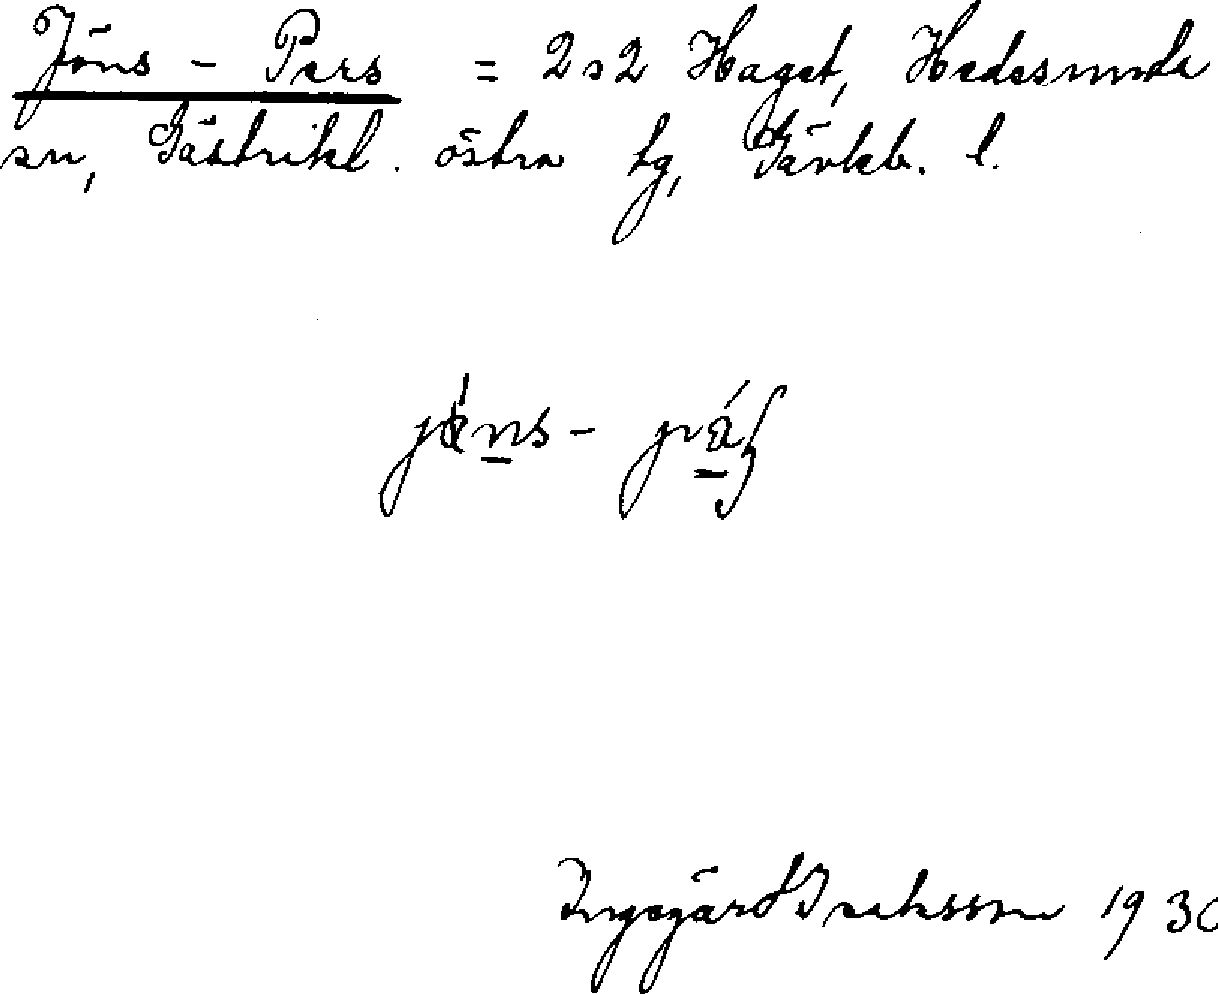 Jöns - Pers = 2a2 Haget, Hedesunda
sn, Gästrikl. östra tg, Gävleb. l.
Ingegärd Isaksson 1930